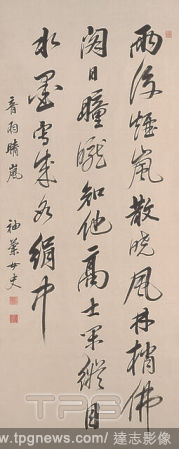 雨後煙嵐散曉風林梢佛
閣日曈曨知他高士縱目
水墨成絹中
雨晴嵐
女史
TPG
www.tpgnews.com
達志影像